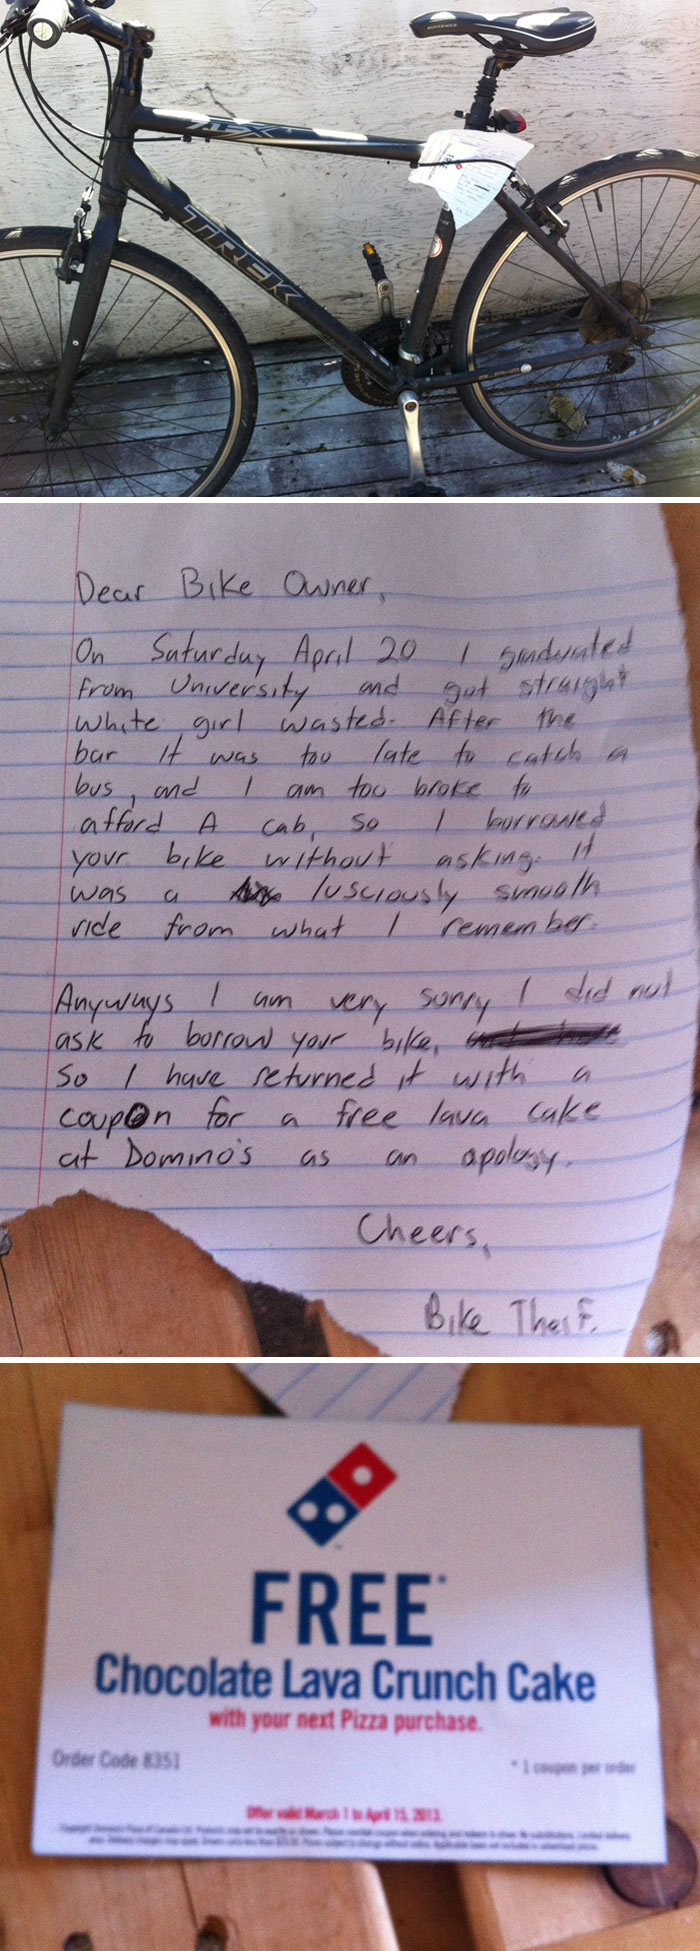 7.1 FX
TREK
Dear Bike Owner,
On Saturday April 20 I graduated
from University and got straight
white girl wasted. After the
bar it was too late to catch a
bus, and I am too broke to
afford A cab, so I borrowed
your bike without asking. It
was a lusciously smooth
ride from what I remember.
Anyways I am very sorry I did not
ask to borrow your bike,
So I have returned it with a
coupon for a free lava cake
at Domino's as an apology.
Cheers,
Bike Theif.
FREE*
Chocolate Lava Crunch Cake
with your next Pizza purchase.
Order Code 8351
* 1 coupon per order
Offer valid March 1 to April 15, 2013.